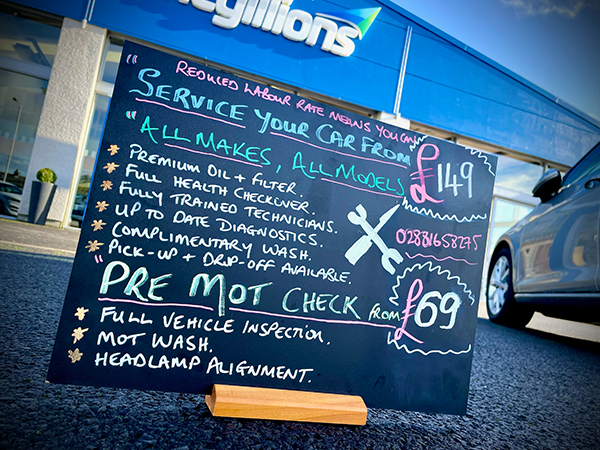 cgillions
"REDUCED LABOUR RATE MEANS YOU CAN
SERVICE YOUR CAR FROM
£149
"ALL MAKES, ALL MODELS
PREMIUM OIL + FILTER.
FULL HEALTH CHECKOVER.
FULLY TRAINED TECHNICIANS.
UP TO DATE DIAGNOSTICS.
COMPLIMENTARY WASH.
PICK-UP + DROP-OFF AVAILABLE.
02881658275
"PRE MOT CHECK FROM £69
FULL VEHICLE INSPECTION.
MOT WASH.
HEADLAMP ALIGNMENT.